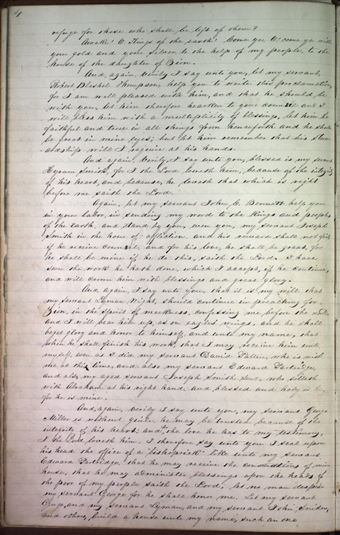 refuge for those who shall be left of them?
Awake! O Kings of the earth! Come ye O! come ye with
your gold and your silver to the help of my people, to the
house of the daughter of Zion.
And again, verily I say unto you, let my servant,
Robert Blashel Thompson help you to write this proclamation,
for I am well pleased with him, and that he should be
with you; let him therefore hearken to your council and I
will bless him with a multiplicity of blessings, let him be
faithful and true in all things from henceforth and he shall
be great in mine eyes; but let him remember that his stew-
ardship will I require at his hands.
And again, Verily, I say unto you, blessed is my servant
Hyrum Smith, for I the Lord loveth him, because of the integrity
of his heart, and because, he loveth that which is right
before me saith the Lord.
Again, let my servant John C. Bennett help you
in your labor, in sending my word to the Kings and people
of the earth, and stand by you, even you, my servant Joseph
Smith in the hour of affliction, and his reward shall not fail
if he receive council; and for his love, he shall be great, for
he shall be mine if he do this, saith the Lord. I have
seen the work he hath done, which I accept, if he continue,
and will crown him with blessings and great glory.
And again, I say unto you, that it is my will, that
my servant Lyman Wight, should continue in preaching for
Zion, in the spirit of meekness, confessing me, before the world
and I will bear him up as on eagles wings, and he shall
beget glory and honor to himself, and unto my name, that
when he shall finish his work, that I may receive him unto
myself, even as I did my servant David Patten, who is with
me at this time, and also my servant Edward Partridge,
and also my aged servant Joseph Smith Sent, who sitteth
with Abraham, at his right hand, and blessed and holy is he,
for he is mine.
And, again, verily I say unto you, my servant George
Miller is without guile, he may be trusted because of the
integrity of his heart; and the love he has to my testimony,
I the Lord loveth him. I therefore say unto you I seal upon
his head the office of a bishoprick like unto my servant
Edward Partridge, that he may receive the consecrations of mine
house, that he may administer blessings upon the heads of
the poor of my people saith the Lord; let no man despise
my servant George for he shall honor me. Let my servant
George, and my servant Lyman, and my servant John Snider,
and others, build a house unto my name, such an one